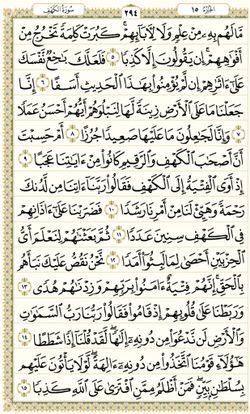 سُورَةُ الكَهْفِ ٢٩٤ الجُزْءُ ١٥
مَّا لَهُم بِهِۦ مِنْ عِلْمٍ وَلَا لِءَابَآئِهِمْ ۚ كَبُرَتْ كَلِمَةً تَخْرُجُ مِنْ
أَفْوَٰهِهِمْ ۚ إِن يَقُولُونَ إِلَّا كَذِبًا ٥ فَلَعَلَّكَ بَٰخِعٌ نَّفْسَكَ
عَلَىٰٓ ءَاثَٰرِهِمْ إِن لَّمْ يُؤْمِنُوا۟ بِهَٰذَا ٱلْحَدِيثِ أَسَفًا ٦ إِنَّا
جَعَلْنَا مَا عَلَى ٱلْأَرْضِ زِينَةً لَّهَا لِنَبْلُوَهُمْ أَيُّهُمْ أَحْسَنُ عَمَلًا
٧ وَإِنَّا لَجَٰعِلُونَ مَا عَلَيْهَا صَعِيدًا جُرُزًا ٨ أَمْ حَسِبْتَ
أَنَّ أَصْحَٰبَ ٱلْكَهْفِ وَٱلرَّقِيمِ كَانُوا۟ مِنْ ءَايَٰتِنَا عَجَبًا
٩ إِذْ أَوَى ٱلْفِتْيَةُ إِلَى ٱلْكَهْفِ فَقَالُوا۟ رَبَّنَآ ءَاتِنَا مِن لَّدُنكَ
رَحْمَةً وَهَيِّئْ لَنَا مِنْ أَمْرِنَا رَشَدًا ١٠ فَضَرَبْنَا عَلَىٰٓ ءَاذَانِهِمْ
فِى ٱلْكَهْفِ سِنِينَ عَدَدًا ١١ ثُمَّ بَعَثْنَٰهُمْ لِنَعْلَمَ أَىُّ
ٱلْحِزْبَيْنِ أَحْصَىٰ لِمَا لَبِثُوٓا۟ أَمَدًا ١٢ نَّحْنُ نَقُصُّ عَلَيْكَ نَبَأَهُم
بِٱلْحَقِّ ۚ إِنَّهُمْ فِتْيَةٌ ءَامَنُوا۟ بِرَبِّهِمْ وَزِدْنَٰهُمْ هُدًى ١٣
وَرَبَطْنَا عَلَىٰ قُلُوبِهِمْ إِذْ قَامُوا۟ فَقَالُوا۟ رَبُّنَا رَبُّ ٱلسَّمَٰوَٰتِ
وَٱلْأَرْضِ لَن نَّدْعُوَا۟ مِن دُونِهِۦٓ إِلَٰهًا ۖ لَّقَدْ قُلْنَآ إِذًا شَطَطًا ١٤
هَٰٓؤُلَآءِ قَوْمُنَا ٱتَّخَذُوا۟ مِن دُونِهِۦٓ ءَالِهَةً ۖ لَّوْلَا يَأْتُونَ عَلَيْهِم
بِسُلْطَٰنٍۭ بَيِّنٍ ۖ فَمَنْ أَظْلَمُ مِمَّنِ ٱفْتَرَىٰ عَلَى ٱللَّهِ كَذِبًا ١٥